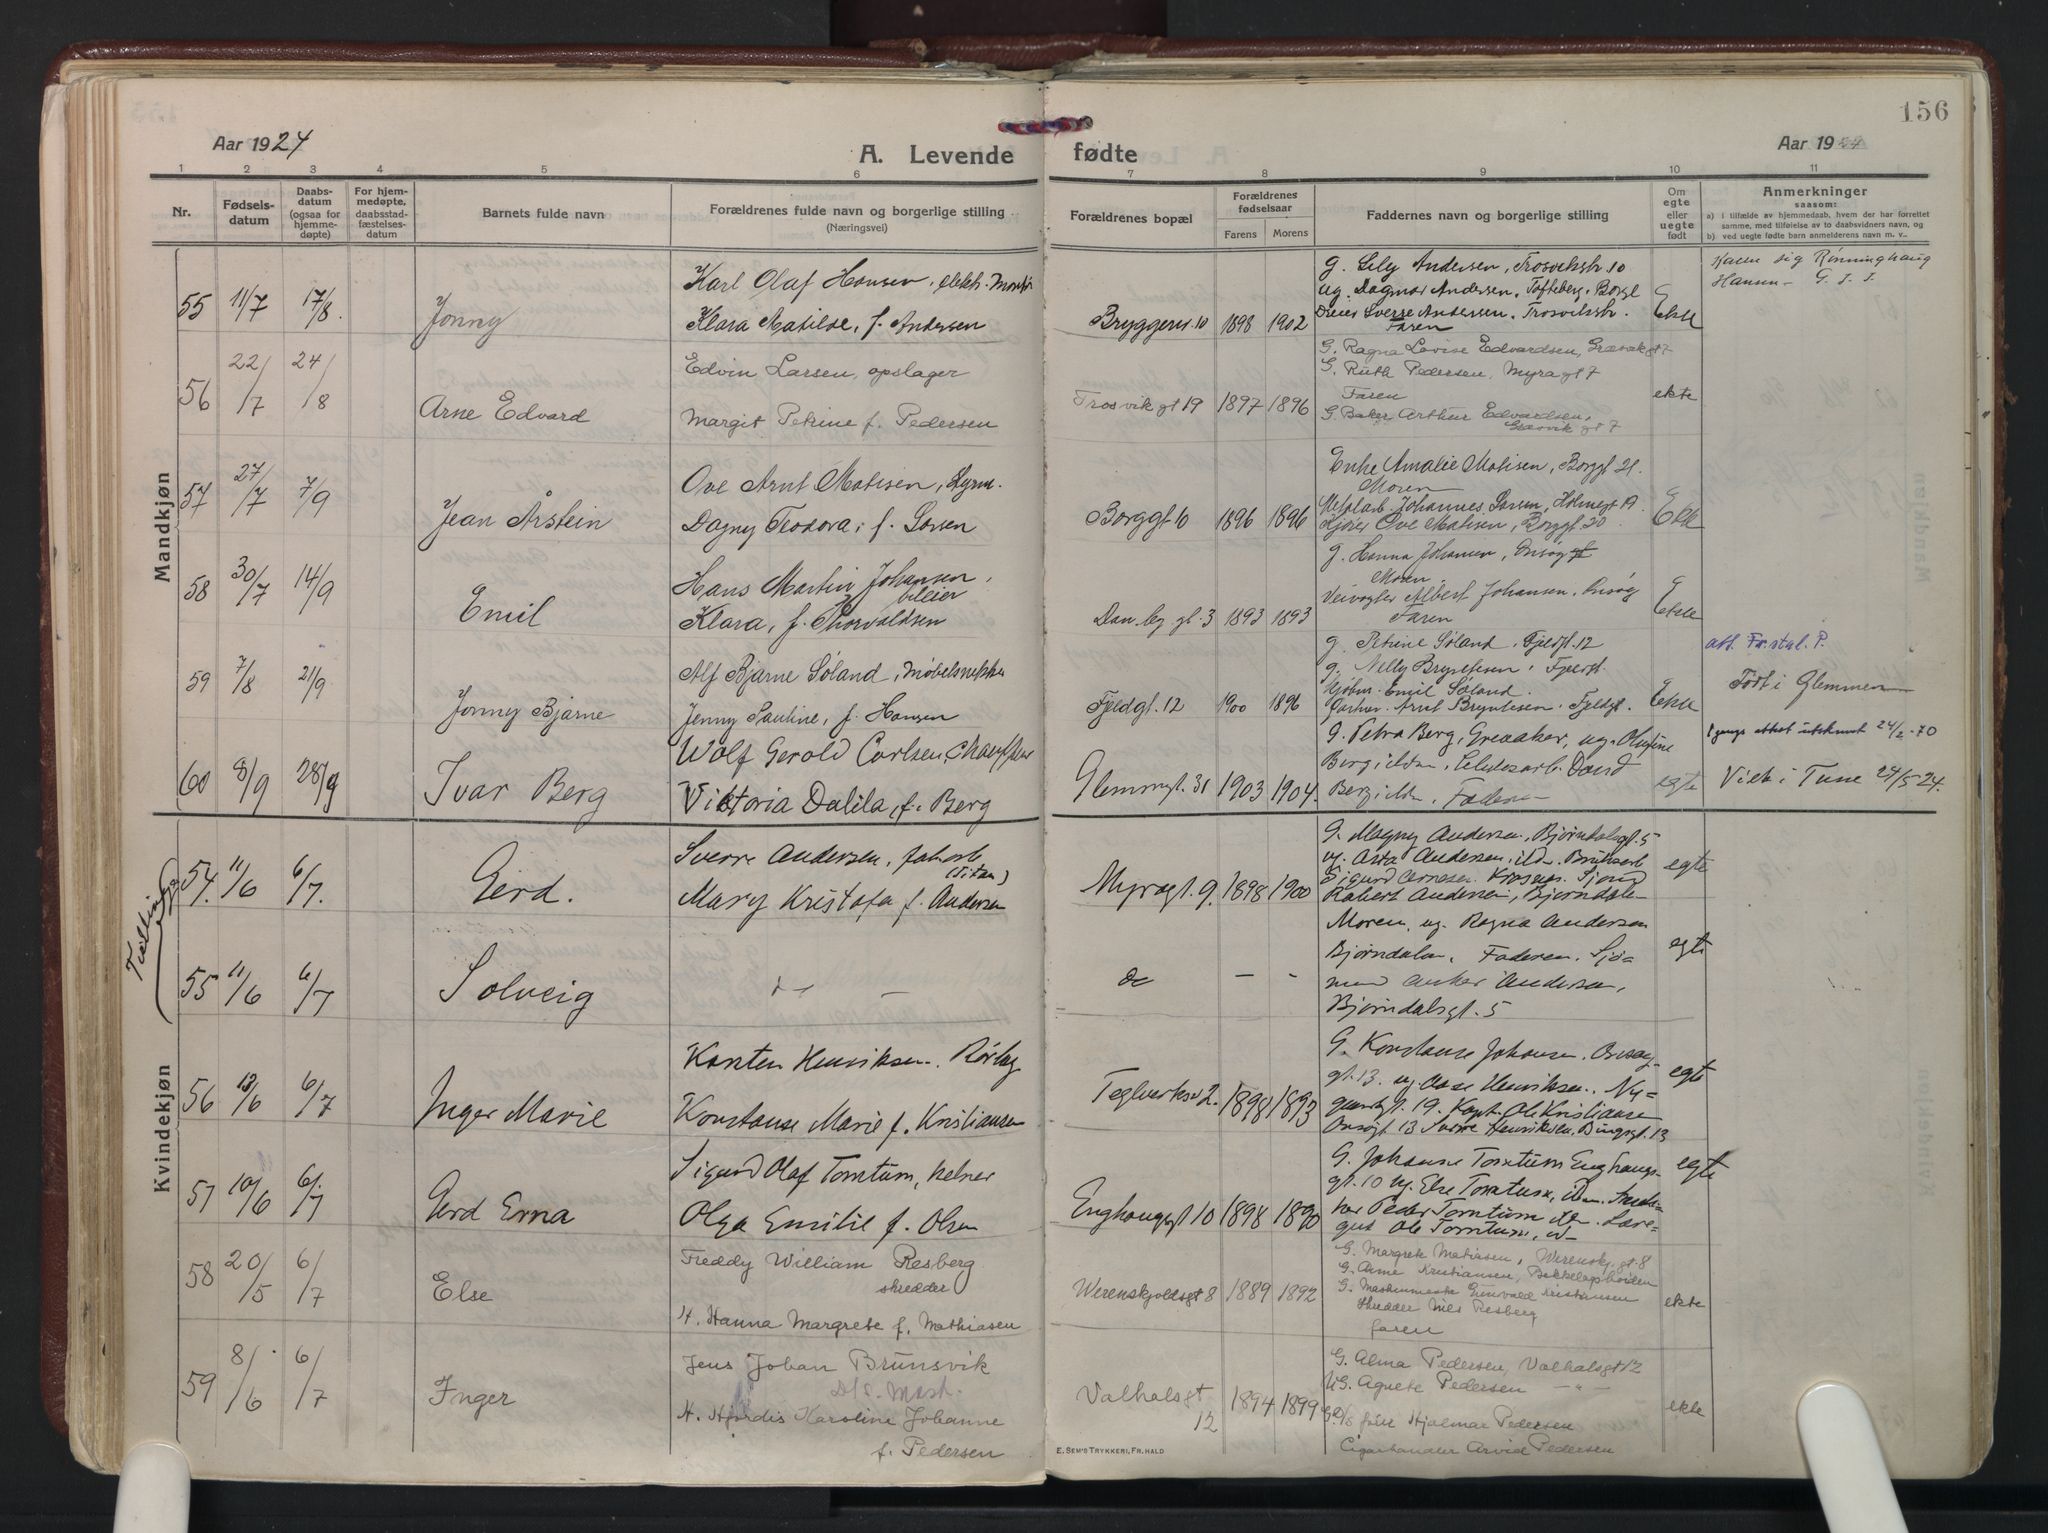 156
Aar 1924
A. Levende fødte
Aar 1924
1 2 3 4 5 6 7 8 9 10 11
Nr.
Fødsels-
datum
Daabs-
datum
(ogsaa for
hjemme-
døpte)
For hjem-
medøpte,
daabsstad-
fæstelses-
datum
Barnets fulde navn
Forældrenes fulde navn og borgerlige stilling
(Næringsvei)
Forældrenes bopæl
Forældrenes
fødselsaar
Farens Morens
Faddernes navn og borgerlige stilling
Om
egte
eller
uegte
født
Anmerkninger
saasom:
a) i tilfælde av hjemmedaab, hvem der har forrettet
samme, med tilføielse av to daabsvidners navn, og
b) ved uegte fødte barn anmelderens navn m. v.
Mandkjøn
55 11/7 17/8. Jonny
Karl Olaf Hansen, elektr. Montør
Klara Matilde, f. Andersen
Bryggeriv. 10 1898 1902
g. Lily Andersen, Trosvikstr 10
ug. Dagmar Andersen, Tofteberg, Borgl
Sverre Andersen, Trosvikstr.
Faren
Ekte
Kaller sig Rønninghaug
Hansen
56 22/7 24/8 Arne Edvard
Edvin Larsen, opslager
Margit Petrine f. Pedersen
Trosvik gt 19 1897 1896
G. Ragna Lovise Edvardsen, Græsvik gt 7
G. Ruth Pedersen, Myragt 7
Faren
G. Baker Arthur Edvardsen,
Græsvik gt 7
ekte
57 27/7 7/9 Jean Årstein
Ove Arnt Matisen,
Dagny Teodora, f. Larsen
Borggt 10 1896 1896
Enke Amalie Matisen, Borggt 21.
Moren
Johannes Larsen, Holmegt 19
Ove Matisen, Borggt. 20
Ekte
58 30/7 14/9 Emil
Hans Martin Johansen,
bileier
Klara, f. Thorvaldsen
Dam by gt. 3 1893 1893
g. Hanna Johansen, Onsøy gt
Moren,
Veivogter Albert Johansen, Onsøy
Faren
Ekte
59 7/8 21/9 Jonny Bjarne
Alf Bjarne Søland, Møbelsnekker
Jenny Pauline, f. Hansen
Fjeldgt. 12 1900 1896
g. Petrine Søland, Fjeldgt. 12
g. Nelly Bryntesen, Fjeldgt.
Emil Søland.
Arnt Bryntesen, Fjeldgt.
Ekte
att. Fr.stal. P.
Født i Glemmen
1 gangs attest utskrevet 24/2-70
60 8/9 28/9 Ivar Berg
Wolf Gerold Carlsen, Chauffør
Viktoria Dalila, f. Berg
Glemmgt. 31 1903 1904.
G. Petra Berg, Greaaker, ug. Olufine
Berg ibidem, Celulosearb. David
Berg ibidm, Faderen
egte
Viet i Tune 24/5-24.
Tvillinger
Kvindekjøn
54. 11/6 6/7. Gerd.
Sverre Andersen, fabarb
(Titan)
Mary Kristofa f. Andersen
Myragt. 9. 1898 1900
G. Magny Andersen, Bjørndalsgt. 5
ug. Asta Andersen, ibdn. Bruksarb
Sigurd Arnesen,
Robert Andersen, Bjørndalen
egte
55 11/6 6/7 Solveig
do — -
Moren, ug. Ragna Andersen
Bjørndalen, Faderen. Sjø=
mand Anker Andersen,
Bjørndalsgt. 5
egte
56 13/6 6/7 Inger Marie
Karsten Henriksen. Rørlæg
Konstanse Marie f. Kristiansen
Teglverksv 2. 1898 1893
G. Konstanse Johansen. Onsøy
gt. 13. ug. Aase Henriksen. Ny=
gaardsgt. 19. Kapt. Ole Kristiansen
Onsøgt 13 Sverre Henriksen,
egte
57 10/6 6/7 Gerd Erna
Sigurd Olaf Tomtum, kelner
Olga Emilie f. Olsen
Enghaugsgt 10 1898 1890
G. Johanne Tomtum Enghaugs-
gt. 10 ug. Else Tomtum, ibm.
Peder Tomtum ibm.
Ole Tomtum,
egte
58 20/5 6/7 Else
Freddy William Resberg
skredder
H. Hanna Margrete f. Mathiasen
Werenskjoldsgt 8 1889 1892
G. Margrete Matiasen, Werenskj. gt. 8
G. Arne Kristiansen, Bekkelagshøiden
G. Maskinmester Kristiansen
Skredder Nils Resberg
faren
ekte
59 8/6 6/7 Inger
Jens Johan Brunsvik
D/S. Mask.
H. Hjørdis Karoline Johanne
f. Pedersen
Valhalsgt
12
1894 1899
G. Alma Pedersen, Valhalsgt 12
UG. Agnete Pedersen — " —
Hjalmar Pedersen
Cigarhandler Arvid Pedersen
ekte
E. SEM'S TRYKKERI, FR.HALD